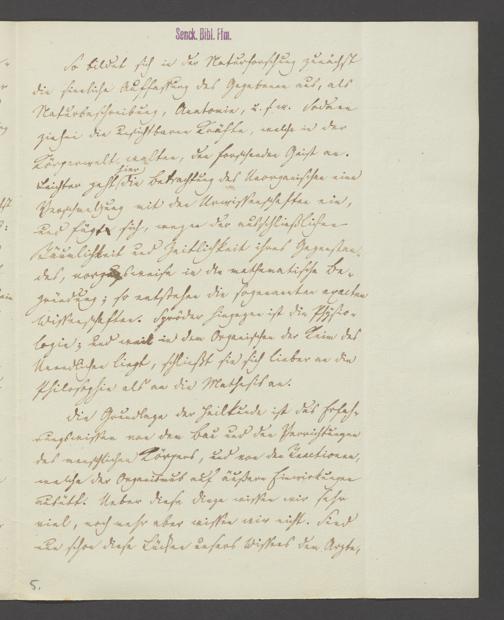 Senck. Bibl. Ffm.
So bildet sich in der Naturforschung zunächst
die sinnliche Auffassung des Gegebenen aus, als
Naturbeschreibung, Anatomie, u. s. w. Sodann
ziehen die unsichtbaren Kräfte, welche in der
Körperwelt walten, den forschenden Geist an.
Leichter geht hier die Betrachtung des Unorganischen eine
Verschmelzung mit den Urwissenschaften ein,
und fügt sich, wegen der ausschließlichen
Räumlichkeit und Zeitlichkeit ihres Gegenstan-
des, vorzugsweise in die mathematische Be-
gründung; so entstehen die sogenannten exacten
Wissenschaften. Spröder hingegen ist die Physio-
logie; und weil in dem Organischen der Keim des
Unendlichen liegt, schließt sie sich lieber an die
Philosophie als an die Mathesis an.
Die Grundlage der Heilkunde ist das Erfah-
rungswissen von dem Bau und den Verrichtungen
des menschlichen Körpers, und von den Reactionen,
welche der Organismus auf äußere Einwirkungen
ausübt. Ueber diese Dinge wissen wir sehr
viel, noch mehr aber wissen wir nicht. Sind
nun schon diese Lücken unsers Wissens dem Arzte,
5.